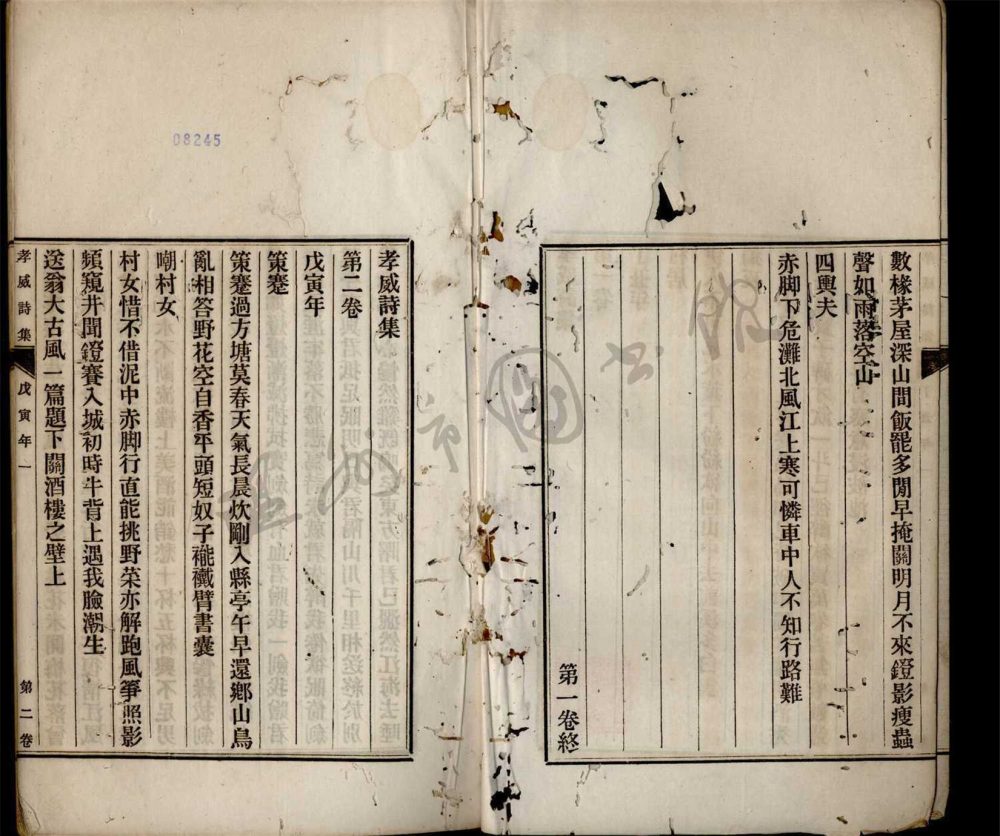 數椽茅屋深山間飯罷多閒早掩關明月不來鐙影瘦蟲
聲如雨落空山
四輿夫
赤脚下危灘北風江上寒可憐車中人不知行路難
第一卷終
孝威詩集
第二卷
戊寅年
策蹇
策蹇過方塘莫春天氣長晨炊剛入縣亭午早還鄉山鳥
亂相答野花空自香平頭短奴子襤襳臂書囊
嘲村女
村女惜不借泥中赤脚行直能挑野菜亦解跑風箏照影
頻窺井聞鐙賽入城初時牛背上遇我臉潮生
送翁大古風一篇題下關酒樓之壁上
孝威詩集 戊寅年 一 第二卷
08245
市圖書館